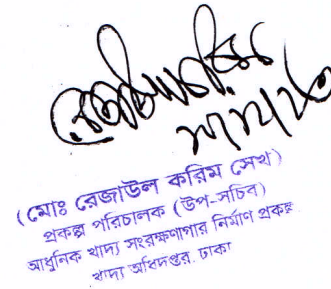 (মোঃ রেজাউল করিম সেখ)
প্রকল্প পরিচালক (উপ-সচিব)
আধুনিক খাদ্য সংরক্ষণাগার নির্মাণ প্রকল্প
খাদ্য অধিদপ্তর, ঢাকা